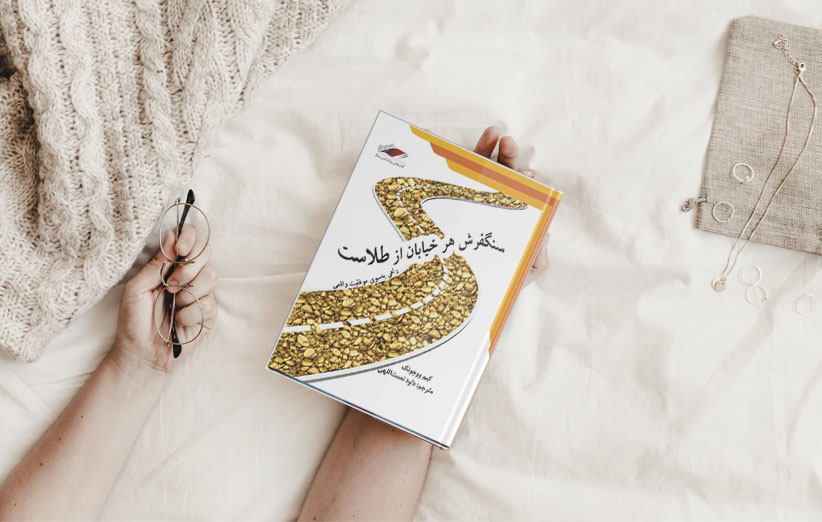 سنگفرش هر خیابان از طلاست
راهی بسوی موفقیت واقعی
کیم ووچونگ
مترجم: داود نعمت‌اللهی